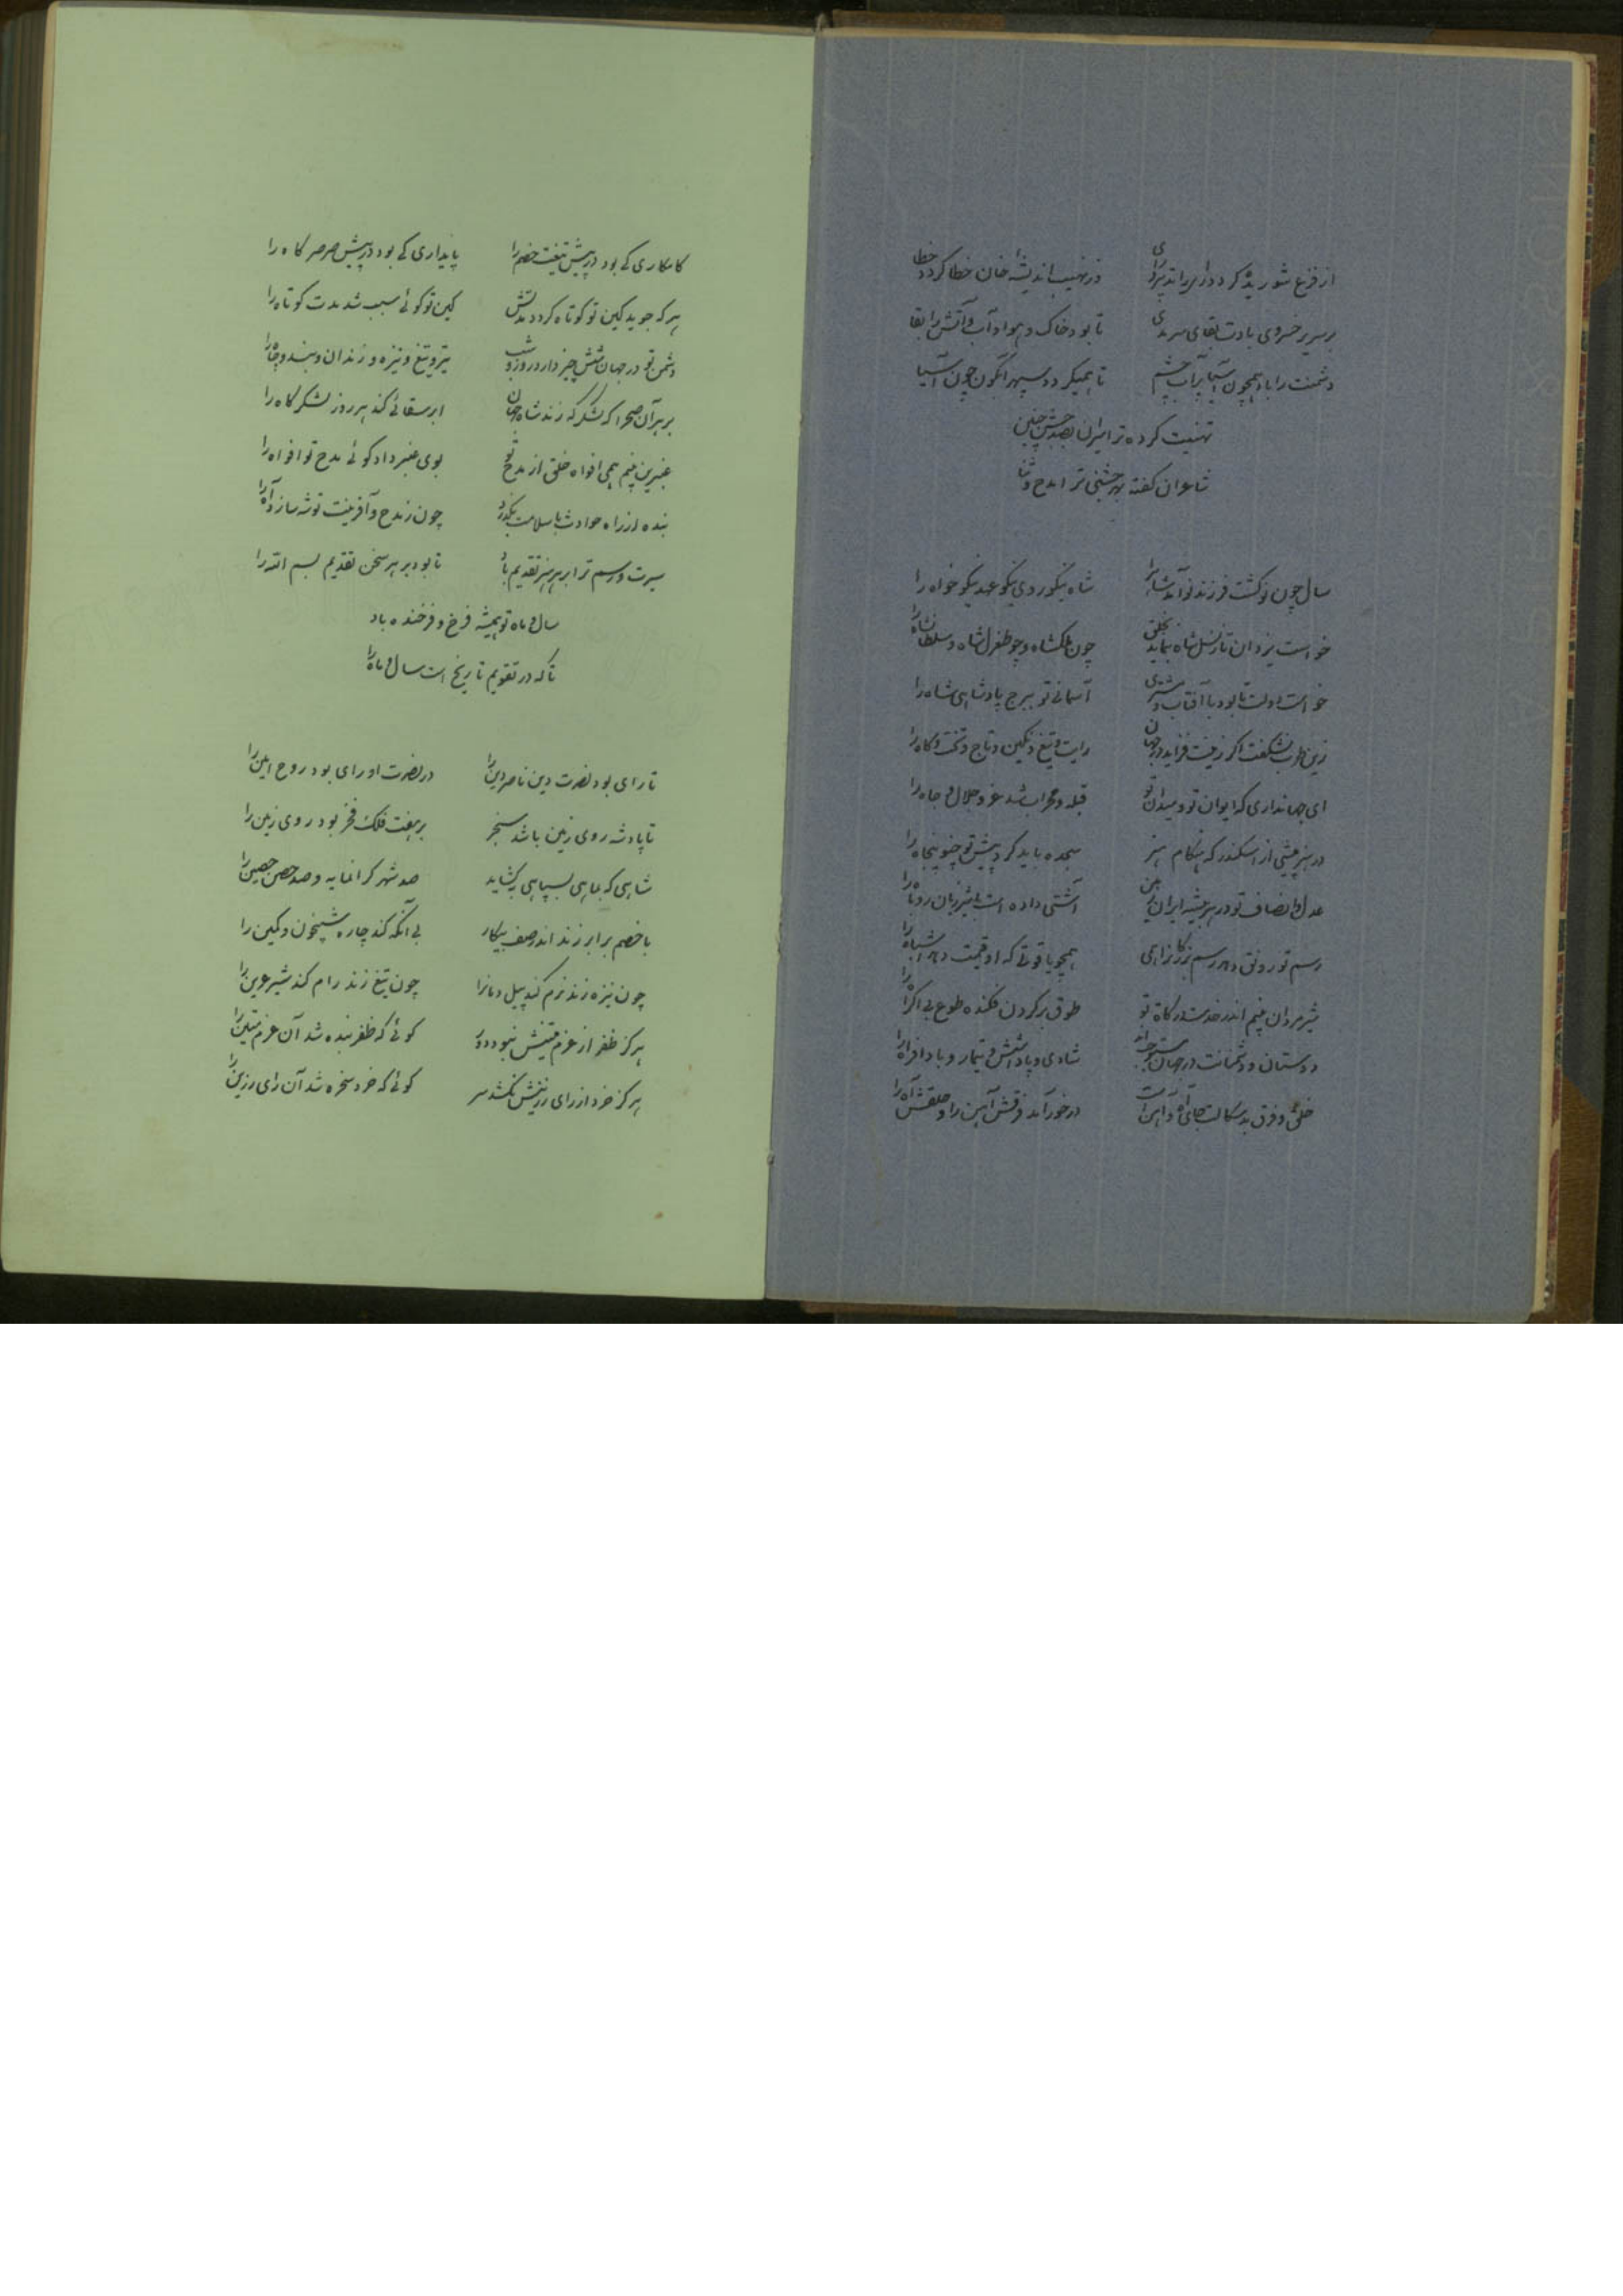 از فزع شوریده گردد رای را تدبیر رای    وز نهیب اندیشهٔ خان خطا گردد خطا
بر سریر خسروی بادت بقای سرمدی    تا بود خاک و هوا و آب و آتش را بقا
دشمنت را باد همچون آسیا پر آب چشم    تا همیگردد سپهر آبگون چون آسیا
تهنیت کرده ترا میران بصد جشن چنین
شاعران گفته بهر جشنی ترا مدح و ثنا
سال چون نو گشت فرزند نو آمد شاه را    شاه نیکو روی نیکو عهد نیکو خواه را
خواست یزدان تا ز نسل شاه بنماید بخلق    چون ملکشاه و چو طغرل شاه و سلطانشاه را
خواست دولت تا بود با آفتاب و مشتری    آسمانی نو ببرج پادشاهی شاه را
زین طرب نشگفت اگر زینت فزاید در جهان    رایت و تیغ و نگین و تاج و تخت و گاه را
ای جهانداری که ایوان تو و میدان تو    قبله و محراب شد عز و جلال و جاه را
در هنر بیشی از اسکندر که هنگام هنر    سجده باید کرد پیش تو چنو پنجاه را
عدل و انصاف تو در هر بیشه ایران زمین    آشتی داده است با شیر ژیان روباه را
رسم تو رونق دهد رسم بزرگانرا همی    همچو یاقوتی که او قیمت دهد اشباه را
شیر مردان بینم اندر خدمت درگاه تو    طوق بر گردن فکنده طوع بی اکراه را
دوستان و دشمنانت در جهان    شادی و پاداش و تیمار و بادافراه را
حلق و فرق بدسگالت جای آه و آهن است    در خور آمد فرقش آهن را و حلقش آه را
کامکاری کی بود در پیش تیغت خصم را    پایداری کی بود در پیش صرصر کاه را
هر که جوید کین تو کوتاه گردد مدتش    کین تو گوئی سبب شد مدت کوتاه را
دشمن تو در جهان شش چیز دارد روز و شب    تیر و تیغ و نیزه و زندان و بند و چاه را
بر هر آن صحرا که لشکرگه زند شاه جهان    ابر سقائی کند هر روز لشکرگاه را
عنبرین بینم همی افواه خلق از مدح تو    بوی عنبر داد گوئی مدح تو افواه را
بنده از راه حوادث با سلامت بگذرد    چون ز مدح و آفرینت توشه سازد راه را
سیرت و رسم ترا بر هر هنر تقدیم باد    تا بود بر هر سخن تقدیم بسم الله را
سال و ماه تو همیشه فرخ و فرخنده باد
تا که در تقویم تاریخ است سال و ماه را
تا رای بود نصرت دین ناصر دین را    در نصرت او رای بود روح امین را
تا پادشه روی زمین باشد سنجر    بر هفت فلک فخر بود روی زمین را
شاهی که بماهی بسپاهی بگشاید    صد شهر گرانمایه و صد حصن حصین را
با خصم برابر زند اندر صف پیکار    بی آنکه کند چاره شبیخون و کمین را
چون نیزه زند نرم کند پیل دمانرا    چون تیغ زند رام کند شیر عرین را
هرگز ظفر از عزم متینش نبود دور    گوئی که ظفر بنده شد آن عزم متین را
هرگز خرد از رای رزینش نکشد سر    گوئی که خرد سخره شد آن رای رزین را